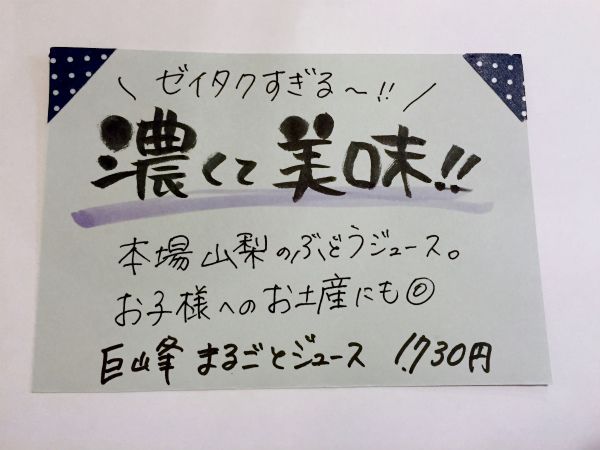 \ ゼイタクすぎる〜!! /
濃くて美味!!
本場山梨のぶどうジュース。
お子様へのお土産にも◎
巨峰 まるごとジュース 1,730円